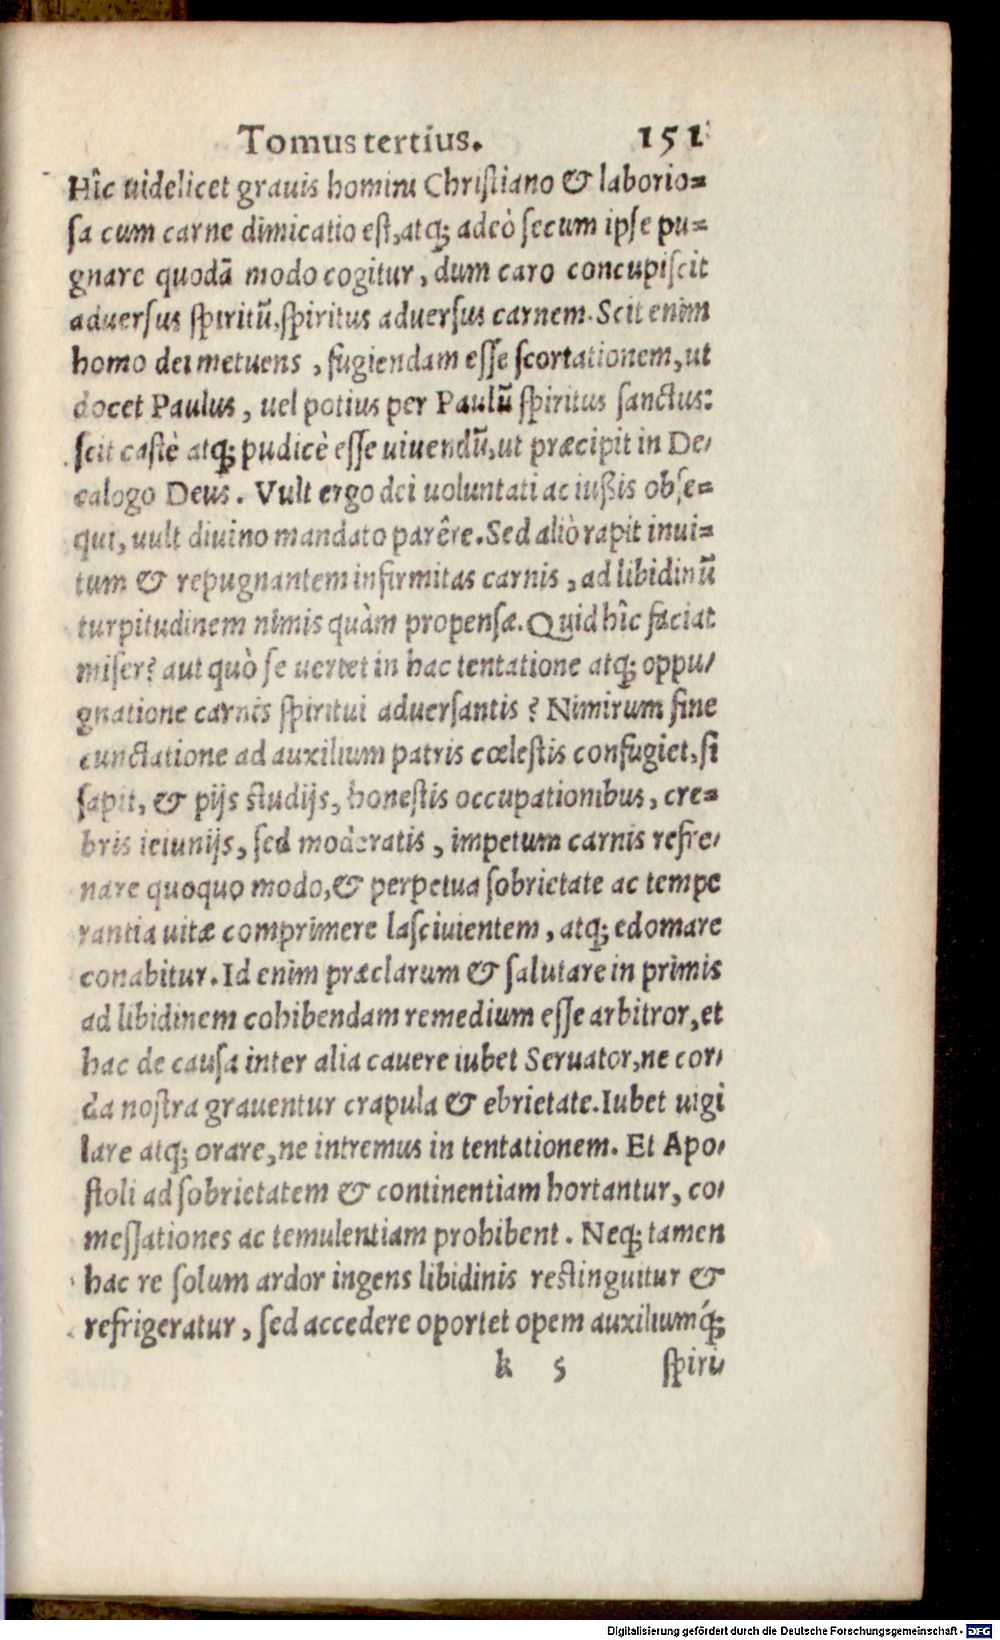 Tomus tertius. 151
Hîc uidelicet grauis homini Christiano & laborio=
sa cum carne dimicatio est, atq; adeò secum ipse pu=
gnare quodã modo cogitur, dum caro concupiscit
aduersus spiritũ, spiritus aduersus carnem. Scit enim
homo dei metuens, fugiendam esse scortationem, ut
docet Paulus, uel potius per Paulũ spiritus sanctus:
scit castè atq; pudicè esse uiuendũ, ut præcipit in De/
calogo Deus. Vult ergo dei uoluntati ac iussis obse=
qui, uult diuino mandato parêre. Sed aliò rapit inui=
tum & repugnantem infirmitas carnis, ad libidinũ
turpitudinem nimis quàm propensæ. Quid hîc faciat
miser? aut quò se uertet in hac tentatione atq; oppu/
gnatione carnis spiritui aduersantis? Nimirum sine
cunctatione ad auxilium patris cœlestis confugiet, si
sapit, & pijs studijs, honestis occupationibus, cre=
bris ieiunijs, sed moderatis, impetum carnis refre/
nare quoquo modo, & perpetua sobrietate ac tempe
rantia uitæ comprimere lasciuientem, atq; edomare
conabitur. Id enim præclarum & salutare in primis
ad libidinem cohibendam remedium esse arbitror, et
hac de causa inter alia cauere iubet Seruator, ne cor/
da nostra grauentur crapula & ebrietate. Iubet uigi
lare atq; orare, ne intremus in tentationem. Et Apo/
stoli ad sobrietatem & continentiam hortantur, co/
messationes ac temulentiam prohibent. Neq; tamen
hac re solum ardor ingens libidinis restinguitur &
refrigeratur, sed accedere oportet opem auxiliumq́;
k 5 spiri/
Digitalisierung gefördert durch die Deutsche Forschungsgemeinschaft - DFG